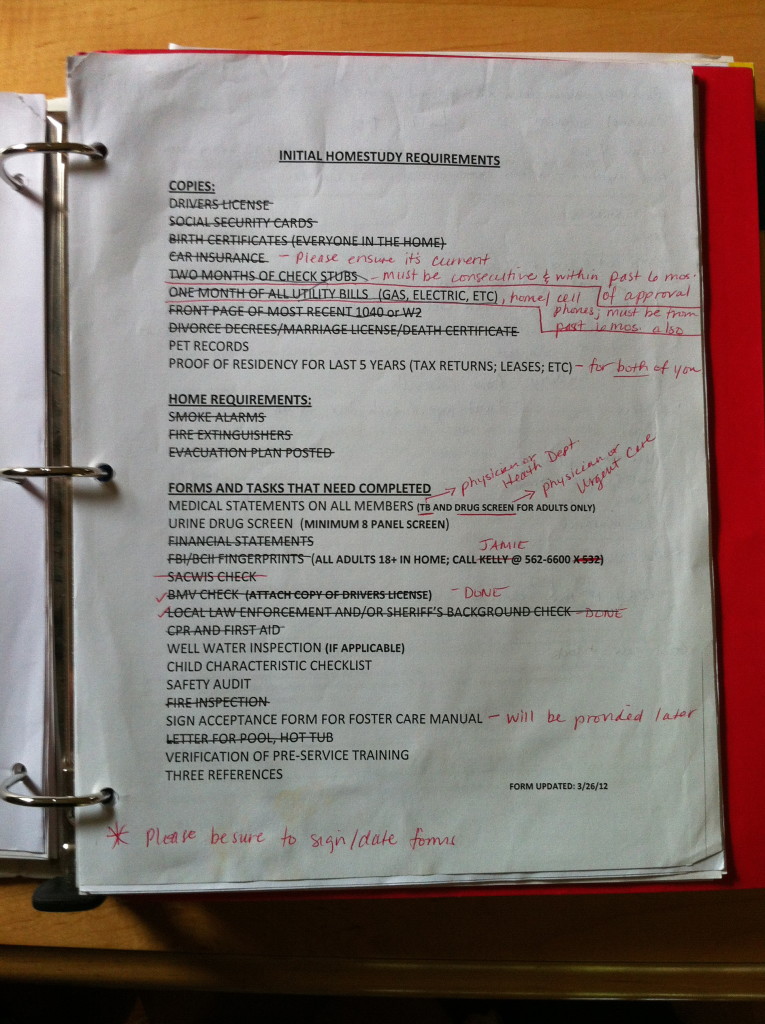 INITIAL HOMESTUDY REQUIREMENTS
COPIES:
DRIVERS LICENSE
SOCIAL SECURITY CARDS
BIRTH CERTIFICATES (EVERYONE IN THE HOME)
CAR INSURANCE - Please ensure it's current
TWO MONTHS OF CHECK STUBS - must be consecutive & within past 6 mos. of approval
ONE MONTH OF ALL UTILITY BILLS (GAS, ELECTRIC, ETC), home/cell phones; must be from past 6 mos. also
FRONT PAGE OF MOST RECENT 1040 or W2
DIVORCE DECREES/MARRIAGE LICENSE/DEATH CERTIFICATE
PET RECORDS
PROOF OF RESIDENCY FOR LAST 5 YEARS (TAX RETURNS; LEASES; ETC) - for both of you
HOME REQUIREMENTS:
SMOKE ALARMS
FIRE EXTINGUISHERS
EVACUATION PLAN POSTED
physician or Health Dept.
physician or Urgent Care
FORMS AND TASKS THAT NEED COMPLETED
MEDICAL STATEMENTS ON ALL MEMBERS (TB AND DRUG SCREEN FOR ADULTS ONLY)
URINE DRUG SCREEN (MINIMUM 8 PANEL SCREEN)
FINANCIAL STATEMENTS
JAMIE
FBI/BCII FINGERPRINTS (ALL ADULTS 18+ IN HOME; CALL KELLY @ 562-6600 X 532)
SACWIS CHECK
✓BMV CHECK (ATTACH COPY OF DRIVERS LICENSE) - DONE
✓LOCAL LAW ENFORCEMENT AND/OR SHERIFF'S BACKGROUND CHECK - DONE
CPR AND FIRST AID
WELL WATER INSPECTION (IF APPLICABLE)
CHILD CHARACTERISTIC CHECKLIST
SAFETY AUDIT
FIRE INSPECTION
SIGN ACCEPTANCE FORM FOR FOSTER CARE MANUAL - will be provided later
LETTER FOR POOL, HOT TUB
VERIFICATION OF PRE-SERVICE TRAINING
THREE REFERENCES
FORM UPDATED: 3/26/12
* Please be sure to sign/date forms